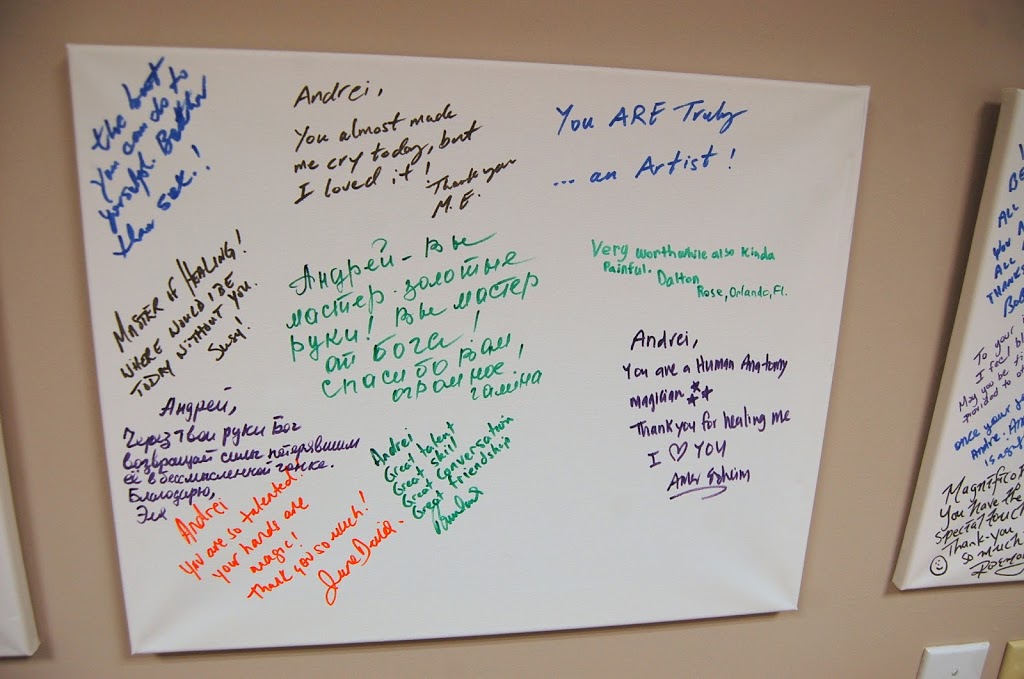 the best
you can do to
yourself. Better
than sex.!
Andrei,
You almost made
me cry today, but
I loved it!
Thank you
M.E.
You ARE Truly
... an Artist!
MASTER OF HEALING!
WHERE WOULD I BE
TODAY WITHOUT YOU.
Susy!
Андрей - Вы
мастер. золотые
руки! Вы мастер
от Бога!
спасибо Вам,
огромное
галина
Very worthwhile also kinda
Painful.
Dalton
Rose, Orlando, Fl.
Andrei,
You are a Human Anatomy
magician
Thank you for healing me
I ♡ YOU
Андрей,
Через твои руки Бог
возвращай силы потерявшим
её в бессмысленной гонке.
Благодарю,
Эля
Andrei
Great talent
Great skill
Great Conversation
Great friendship
Andrei
You are so talented!
your hands are
magic!
thank you so much!
June
BE
ALL
YOU
ALL
THANKS
To your
I feel
May you be
provided to
once your
Andre.
is a
Magnifico
You have the
special touch
Thank-you
so much